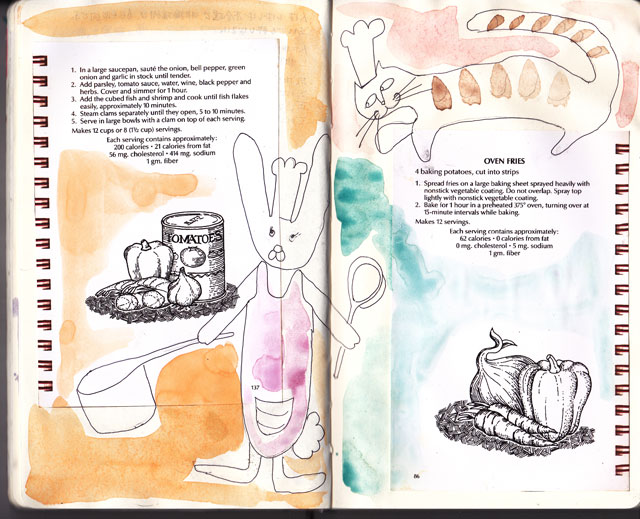 1. In a large saucepan, sauté the onion, bell pepper, green
onion and garlic in stock until tender.
2. Add parsley, tomato sauce, water, wine, black pepper and
herbs. Cover and simmer for 1 hour.
3. Add the cubed fish and shrimp and cook until fish flakes
easily, approximately 10 minutes.
4. Steam clams separately until they open, 5 to 10 minutes.
5. Serve in large bowls with a clam on top of each serving.
Makes 12 cups or 8 (1½ cup) servings.
Each serving contains approximately:
200 calories • 21 calories from fat
56 mg. cholesterol • 414 mg. sodium
1 gm. fiber
TOMATOES
137
OVEN FRIES
4 baking potatoes, cut into strips
1. Spread fries on a large baking sheet sprayed heavily with
nonstick vegetable coating. Do not overlap. Spray top
lightly with nonstick vegetable coating.
2. Bake for 1 hour in a preheated 375° oven, turning over at
15-minute intervals while baking.
Makes 12 servings.
Each serving contains approximately:
62 calories • 0 calories from fat
0 mg. cholesterol • 5 mg. sodium
1 gm. fiber
86